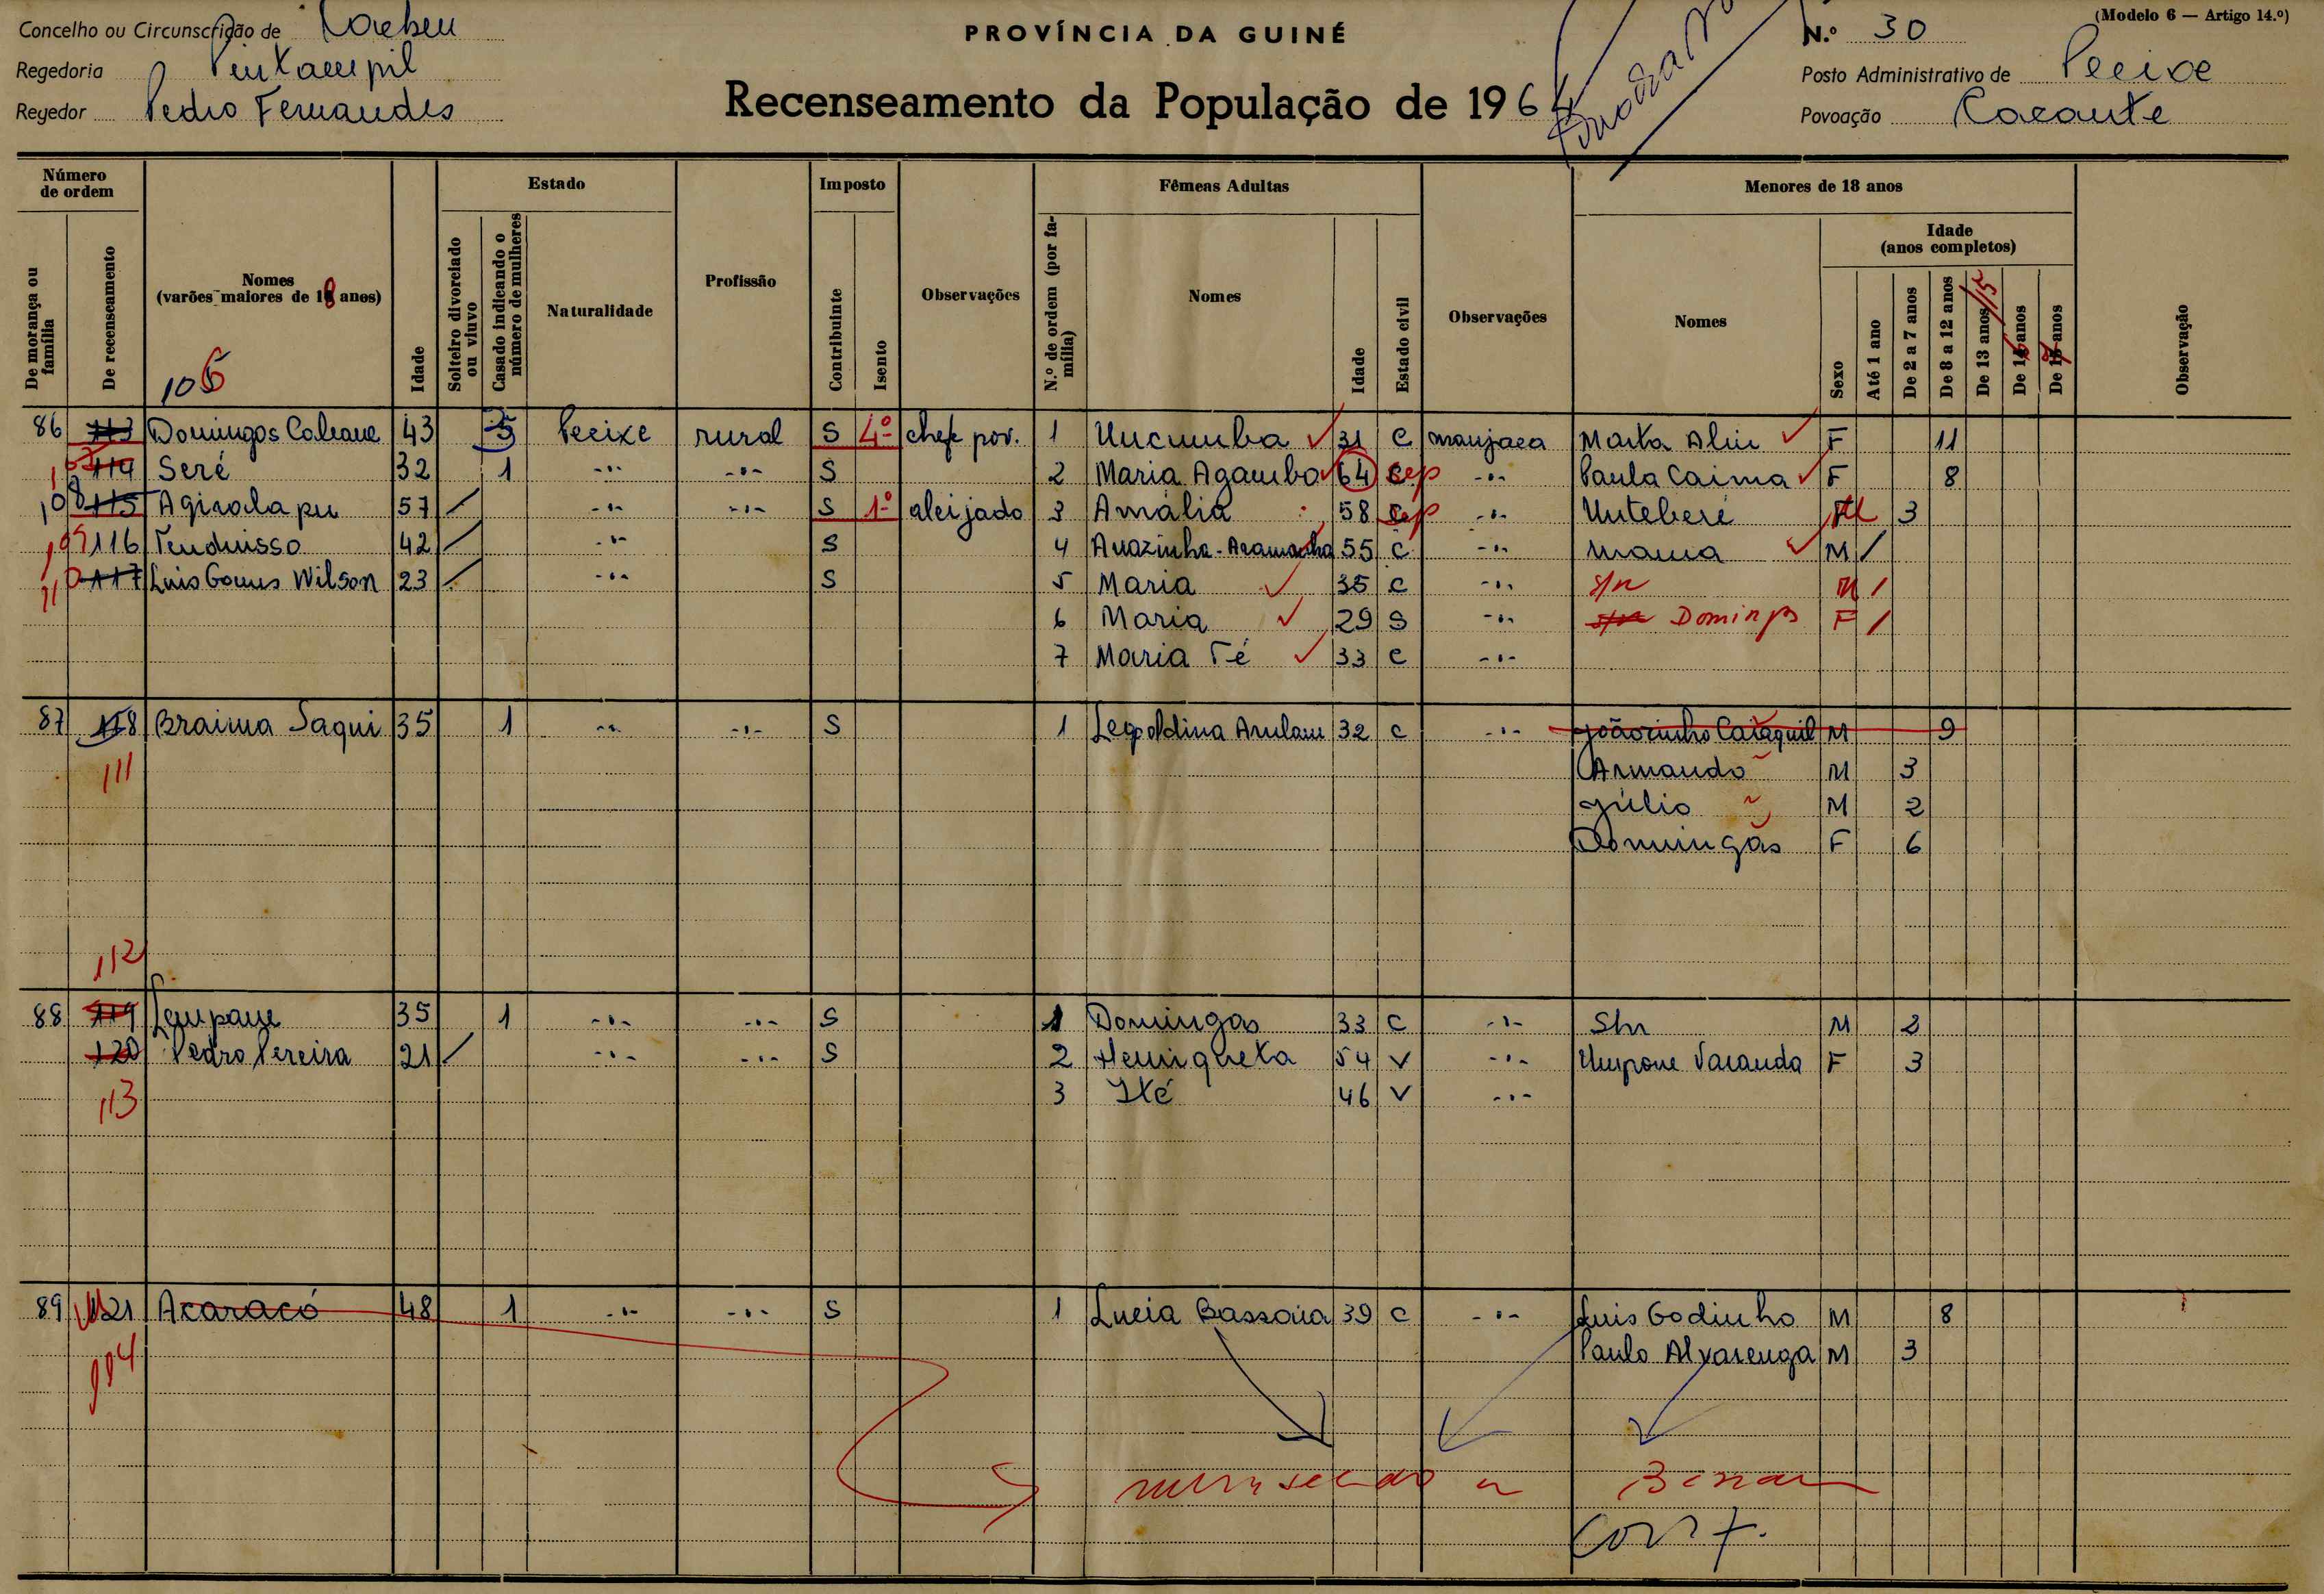 Concelho ou Circunscrição de Cacheu
PROVÍNCIA DA GUINÉ
N.º 30
(Modelo 6 — Artigo 14.º)
Regedoria
Posto Administrativo de Pecixe
Regedor Pedro Fernandes
Recenseamento da População de 1964
Povoação Cacante
Número de ordem
Estado
Imposto
Fêmeas Adultas
Menores de 18 anos
De morança ou família
De recenseamento
Nomes (varões maiores de 18 anos)
106
Idade
Solteiro divorciado ou viuvo
Casado indicando o número de mulheres
Naturalidade
Profissão
Contribuinte
Isento
Observações
N.º de ordem (por família)
Nomes
Idade
Estado civil
Observações
Nomes
Sexo
Idade (anos completos)
Até 1 ano
De 2 a 7 anos
De 8 a 12 anos
De 13 anos
15
De anos
De anos
Observação
86 113 Domingos 43 5 Pecixe rural S 4º chefe pov. 1 Uncumba 31 C manjaca Marta F 11
114 Seré 32 1 -"- -"- S 2 Maria Agamba 64 sep -"- Paula Caima F 8
108 115 57 / -"- -"- S 1º aleijado 3 Amália 58 sep -"- Unteberé 3
109 116 42 / -"- S 4 55 C -"- mama M /
110 117 Luis Gomes Wilson 23 / -"- S 5 Maria 35 C -"- s/n M /
6 Maria 29 S -"- s/n Domingas F /
7 Maria Té 33 C -"-
87 118 Braima Saqui 35 1 -"- -"- S 1 Leopoldina 32 C -"- M 9
111 Armando M 3
Júlio M 2
Domingas F 6
112
88 119 35 1 -"- -"- S 1 Domingas 33 C -"- S/n M 2
120 Pedro Pereira 21 / -"- -"- S 2 Henriqueta 54 V -"- F 3
113 3 Ité 46 V -"-
89 121 Acaracó 48 1 -"- -"- S 1 Lucia 39 C -"- Luis Godinho M 8
114 Paulo Alvarenga M 3